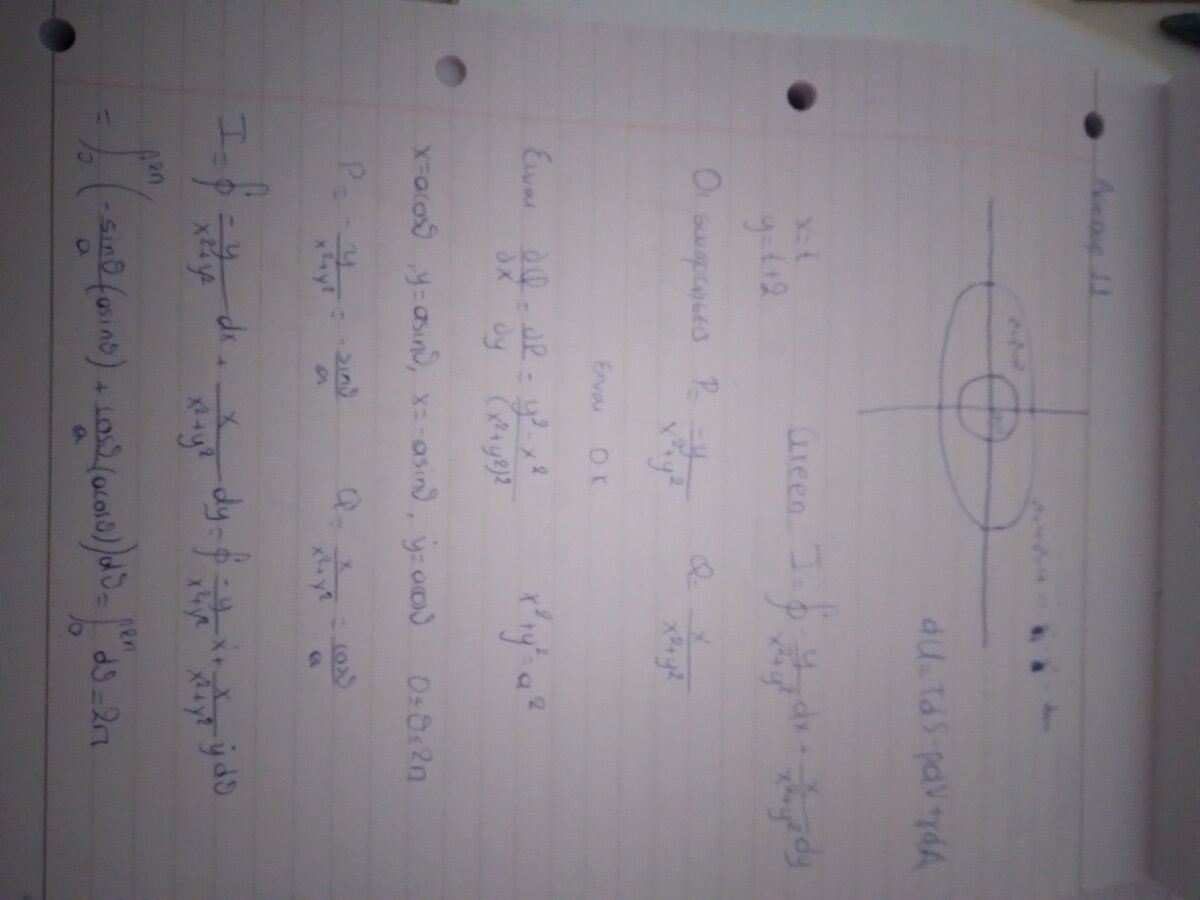 Άσκηση 11
dU = TdS - pdV + γdA
x=t
y=t+2
Green I = ∮ -y/(x²+y²) dx + x/(x²+y²) dy
Οι συναρτήσεις P = -y/(x²+y²) Q = x/(x²+y²)
Είναι ΟΚ
Είναι ∂Q/∂x = ∂P/∂y = (y²-x²)/(x²+y²)² x²+y²=a²
x=acosθ, y=asinθ, ẋ=-asinθ, ẏ=acosθ 0≤θ≤2π
P = -y/(x²+y²) = -sinθ/a Q = x/(x²+y²) = cosθ/a
I = ∮ -y/(x²+y²) dx + x/(x²+y²) dy = ∮ -y/(x²+y²) ẋ + x/(x²+y²) ẏ dθ
= ∫₀²π (-sinθ/a (asinθ) + cosθ/a (acosθ)) dθ = ∫₀²π dθ = 2π